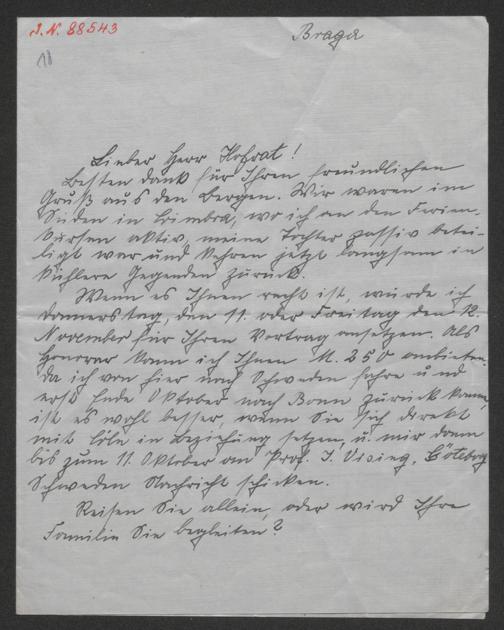 J.N. 88543
Braga
18
Lieber Herr Hofrat!
Besten Dank für Ihren freundlichen
Gruß aus den Bergen. Wir waren im
Süden in Coimbra, wo ich an den Ferien-
kursen aktiv, meine Tochter passiv betei-
ligt war und kehren jetzt langsam in
kühlere Gegenden zurück.
Wenn es Ihnen recht ist, würde ich
Donnerstag, den 11. oder Freitag den 12.
November für Ihren Vortrag ansetzen. Als
Honorar kann ich Ihnen M. 250 anbieten.
Da ich von hier nach Schweden fahre und
erst Ende Oktober nach Bonn zurück komme,
ist es wohl besser, wenn Sie sich direkt
mit Cöln in Beziehung setzen, u. mir dann
bis zum 11. Oktober an Prof. J. Vising, Göteborg
Schweden Nachricht schicken.
Reisen Sie allein, oder wird Ihre
Familie Sie begleiten?